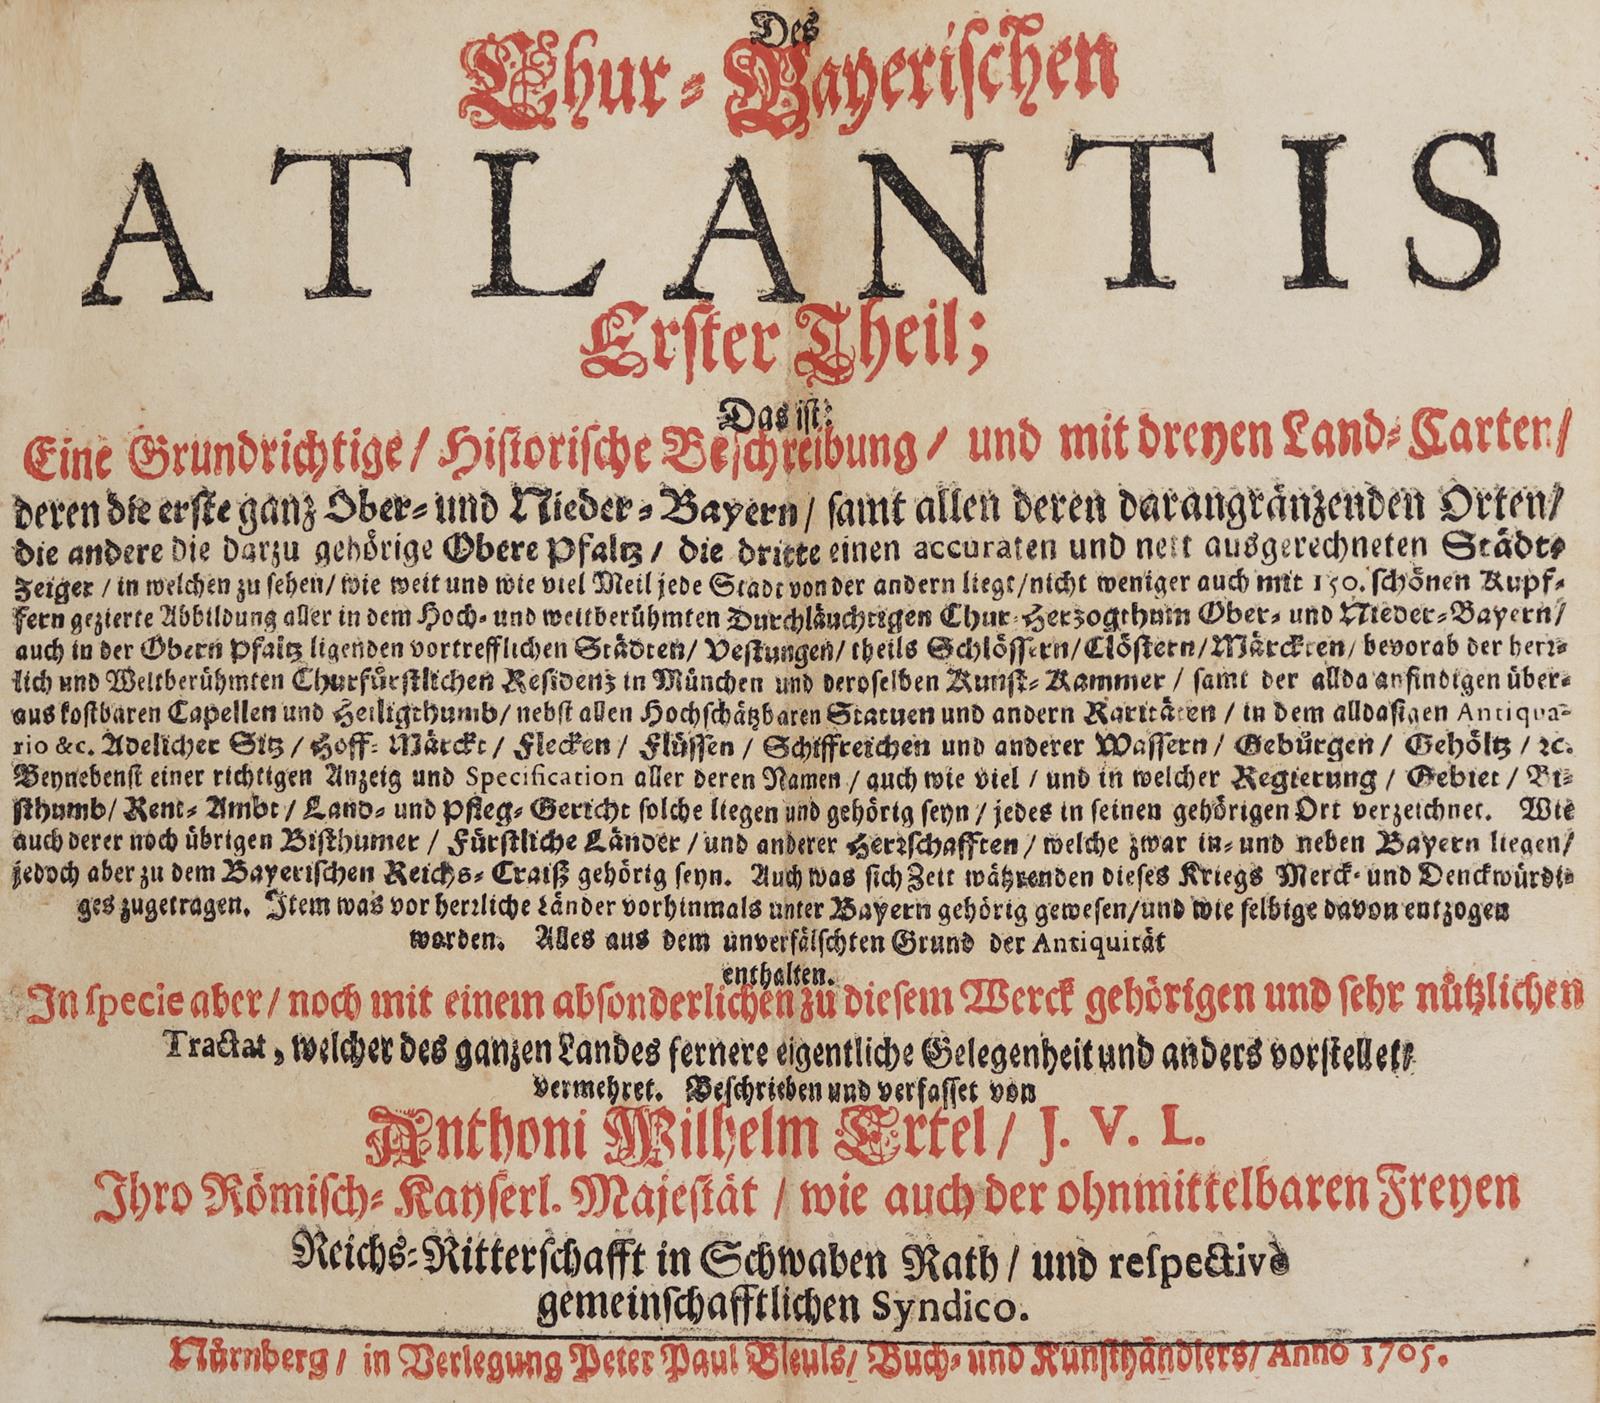 Des
Chur-Bayerischen
ATLANTIS
Erster Theil;
Das ist:
Eine Grundrichtige/ Historische Beschreibung/ und mit dreyen Land-Carten/
deren die erste ganz Ober- und Nieder-Bayern/ samt allen deren darangränzenden Orten/
die andere die darzu gehörige Obere Pfaltz/ die dritte einen accuraten und nett ausgerechneten Städt-
Zeiger/ in welchen zu sehen/ wie weit und wie viel Meil jede Stadt von der andern liegt/ nicht weniger auch mit 150. schönen Kupf-
fern gezierte Abbildung aller in dem Hoch- und weitberühmten Durchläuchtigen Chur-Herzogthum Ober- und Nieder-Bayern/
auch in der Obern Pfaltz ligenden vortrefflichen Städten/ Vestungen/ theils Schlössern/ Clöstern/ Märckten/ bevorab der herr-
lich und Weltberühmten Churfürstlichen Residenz in München und deroselben Kunst-Kammer/ samt der allda anfindigen über-
aus kostbaren Capellen und Heiligthumb/ nebst allen Hochschätzbaren Statuen und andern Raritäten/ in dem alldasigen Antiqua-
rio &c. Adelicher Sitz/ Hoff-Märckt/ Flecken/ Flüssen/ Schiffreichen und anderer Wassern/ Gebürgen/ Gehöltz/ ꝛc.
Beynebenst einer richtigen Anzeig und Specification aller deren Namen/ auch wie viel/ und in welcher Regierung/ Gebiet/ Bi-
sthumb/ Rent-Ambt/ Land- und Pfleg-Gericht solche liegen und gehörig seyn/ jedes in seinen gehörigen Ort verzeichnet. Wie
auch derer noch übrigen Bisthumer/ Fürstliche Länder/ und anderer Herrschafften/ welche zwar in- und neben Bayern liegen/
jedoch aber zu dem Bayerischen Reichs-Craiß gehörig seyn. Auch was sich Zeit währenden dieses Kriegs Merck- und Denckwürdi-
ges zugetragen. Item was vor herrliche Länder vorhinmals unter Bayern gehörig gewesen/ und wie selbige davon entzogen
worden. Alles aus dem unverfälschten Grund der Antiquität
enthalten.
In specie aber/ noch mit einem absonderlichen zu diesem Werck gehörigen und sehr nützlichen
Tractat, welcher des ganzen Landes fernere eigentliche Gelegenheit und anders vorstellet/
vermehret. Beschrieben und verfasset von
Anthoni Wilhelm Ertel/ J. V. L.
Ihro Römisch-Kayserl. Majestät/ wie auch der ohnmittelbaren Freyen
Reichs-Ritterschafft in Schwaben Rath/ und respectivè
gemeinschafftlichen Syndico.
Nürnberg/ in Verlegung Peter Paul Bleuls/ Buch- und Kunsthändlers/ Anno 1705.